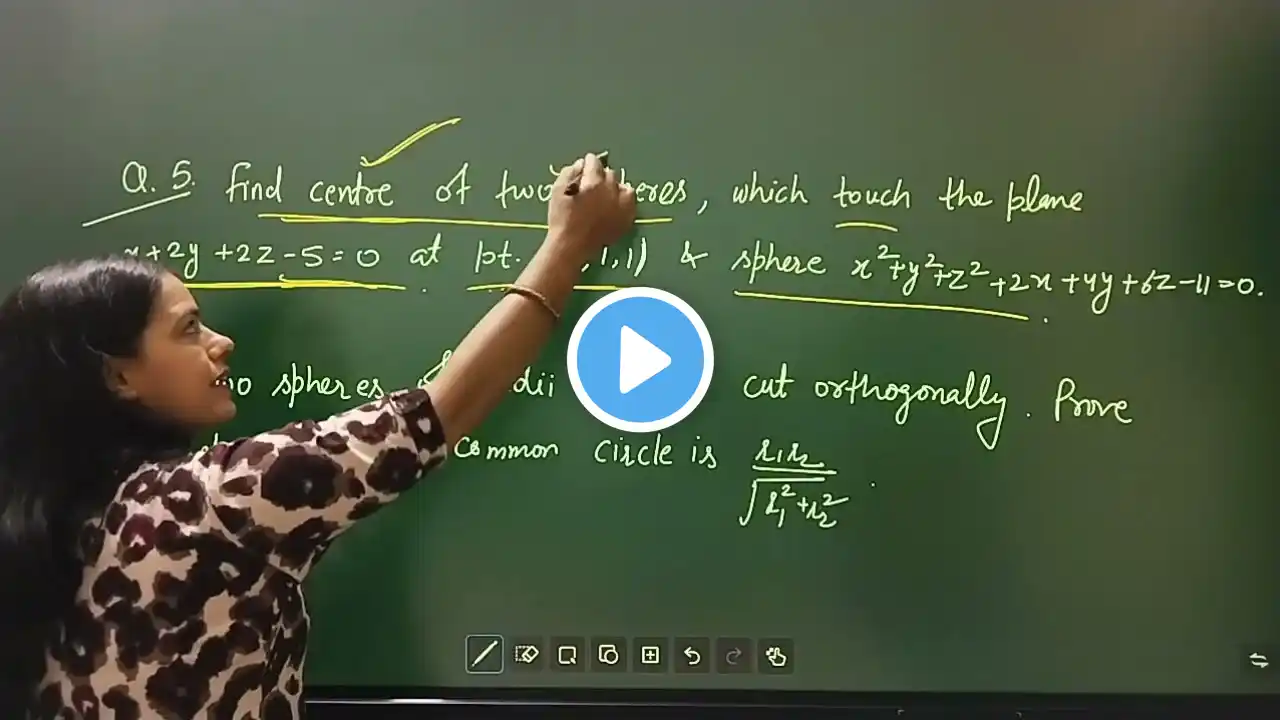 Q. 5. find centre of two spheres, which touch the plane
x+2y+2z-5=0 at pt. ,1,1) & sphere x²+y²+z²+2x+4y+6z-11=0.
spheres cut orthogonally. Prove
common circle is r₁r₂/√r₁²+r₂².